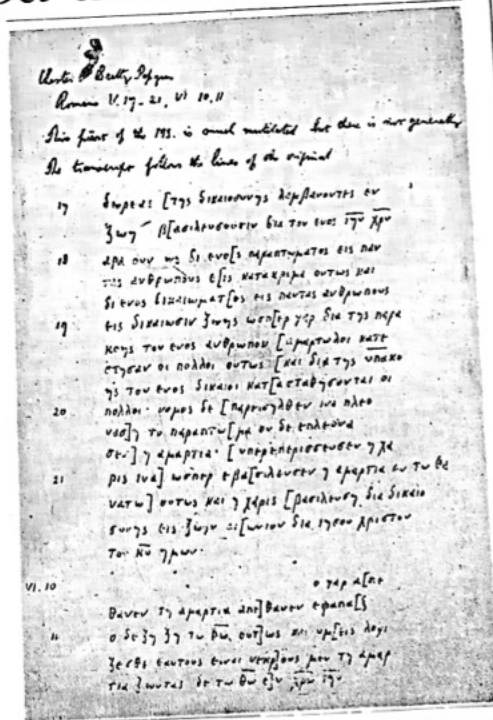 Chester Beatty Papyrus
Romans V. 17-21, VI 10, 11
This part of the MS. is much mutilated but there is not generally
The transcript follows the lines of the original
17 δωρεας [της δικαιοσυνης λαμβανοντες εν
ζωη β[ασιλευσουσιν δια του ενος ιην χρυ
18 αρα ουν ως δι ενο[ς παραπτωματος εις παν
τας ανθρωπους ε[ις κατακριμα ουτως και
δι ενος δικαιωματ[ος εις παντας ανθρωπους
19 εις δικαιωσιν ζωης ωσπ[ερ γαρ δια της παρα
κοης του ενος ανθρωπου [αμαρτωλοι κατε
στησαν οι πολλοι ουτως [και δια της υπακο
ης του ενος δικαιοι κατ[ασταθησονται οι
20 πολλοι· νομος δε [παρεισηλθεν ινα πλεο
νασ]η το παραπτω[μα ου δε επλεονα
σεν] η αμαρτια· [υπερεπερισσευσεν η χα
21 ρις ινα] ωσπερ εβα[σιλευσεν η αμαρτια εν τω θα
νατω] ουτως και η χαρις [βασιλευση δια δικαιο
συνης εις ζωην αι[ωνιον δια ιησου χριστου
του κυ ημων·
VI. 10 ο γαρ α[πε
θανεν τη αμαρτια απε]θανεν εφαπα[ξ
11 ο δε ζη ζη τω θω. ουτ]ως και υμ[εις λογι
ζεσθε εαυτους ειναι νεκρ]ους μεν τη αμαρ
τια ζωντας δε τω θω ε[ν χρω ιην